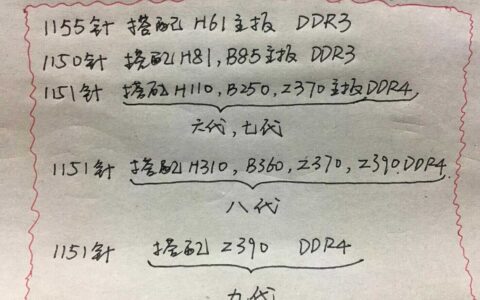 1155针 搭配 H61主板 DDR3
1150针 搭配 H81, B85主板 DDR3
1151针 搭配 H110, B250, Z370主板DDR4
六代, 七代
1151针 搭配 H310, B360, Z370, Z390.DDR4.
八代
1151针 搭配 Z390 DDR4
九代